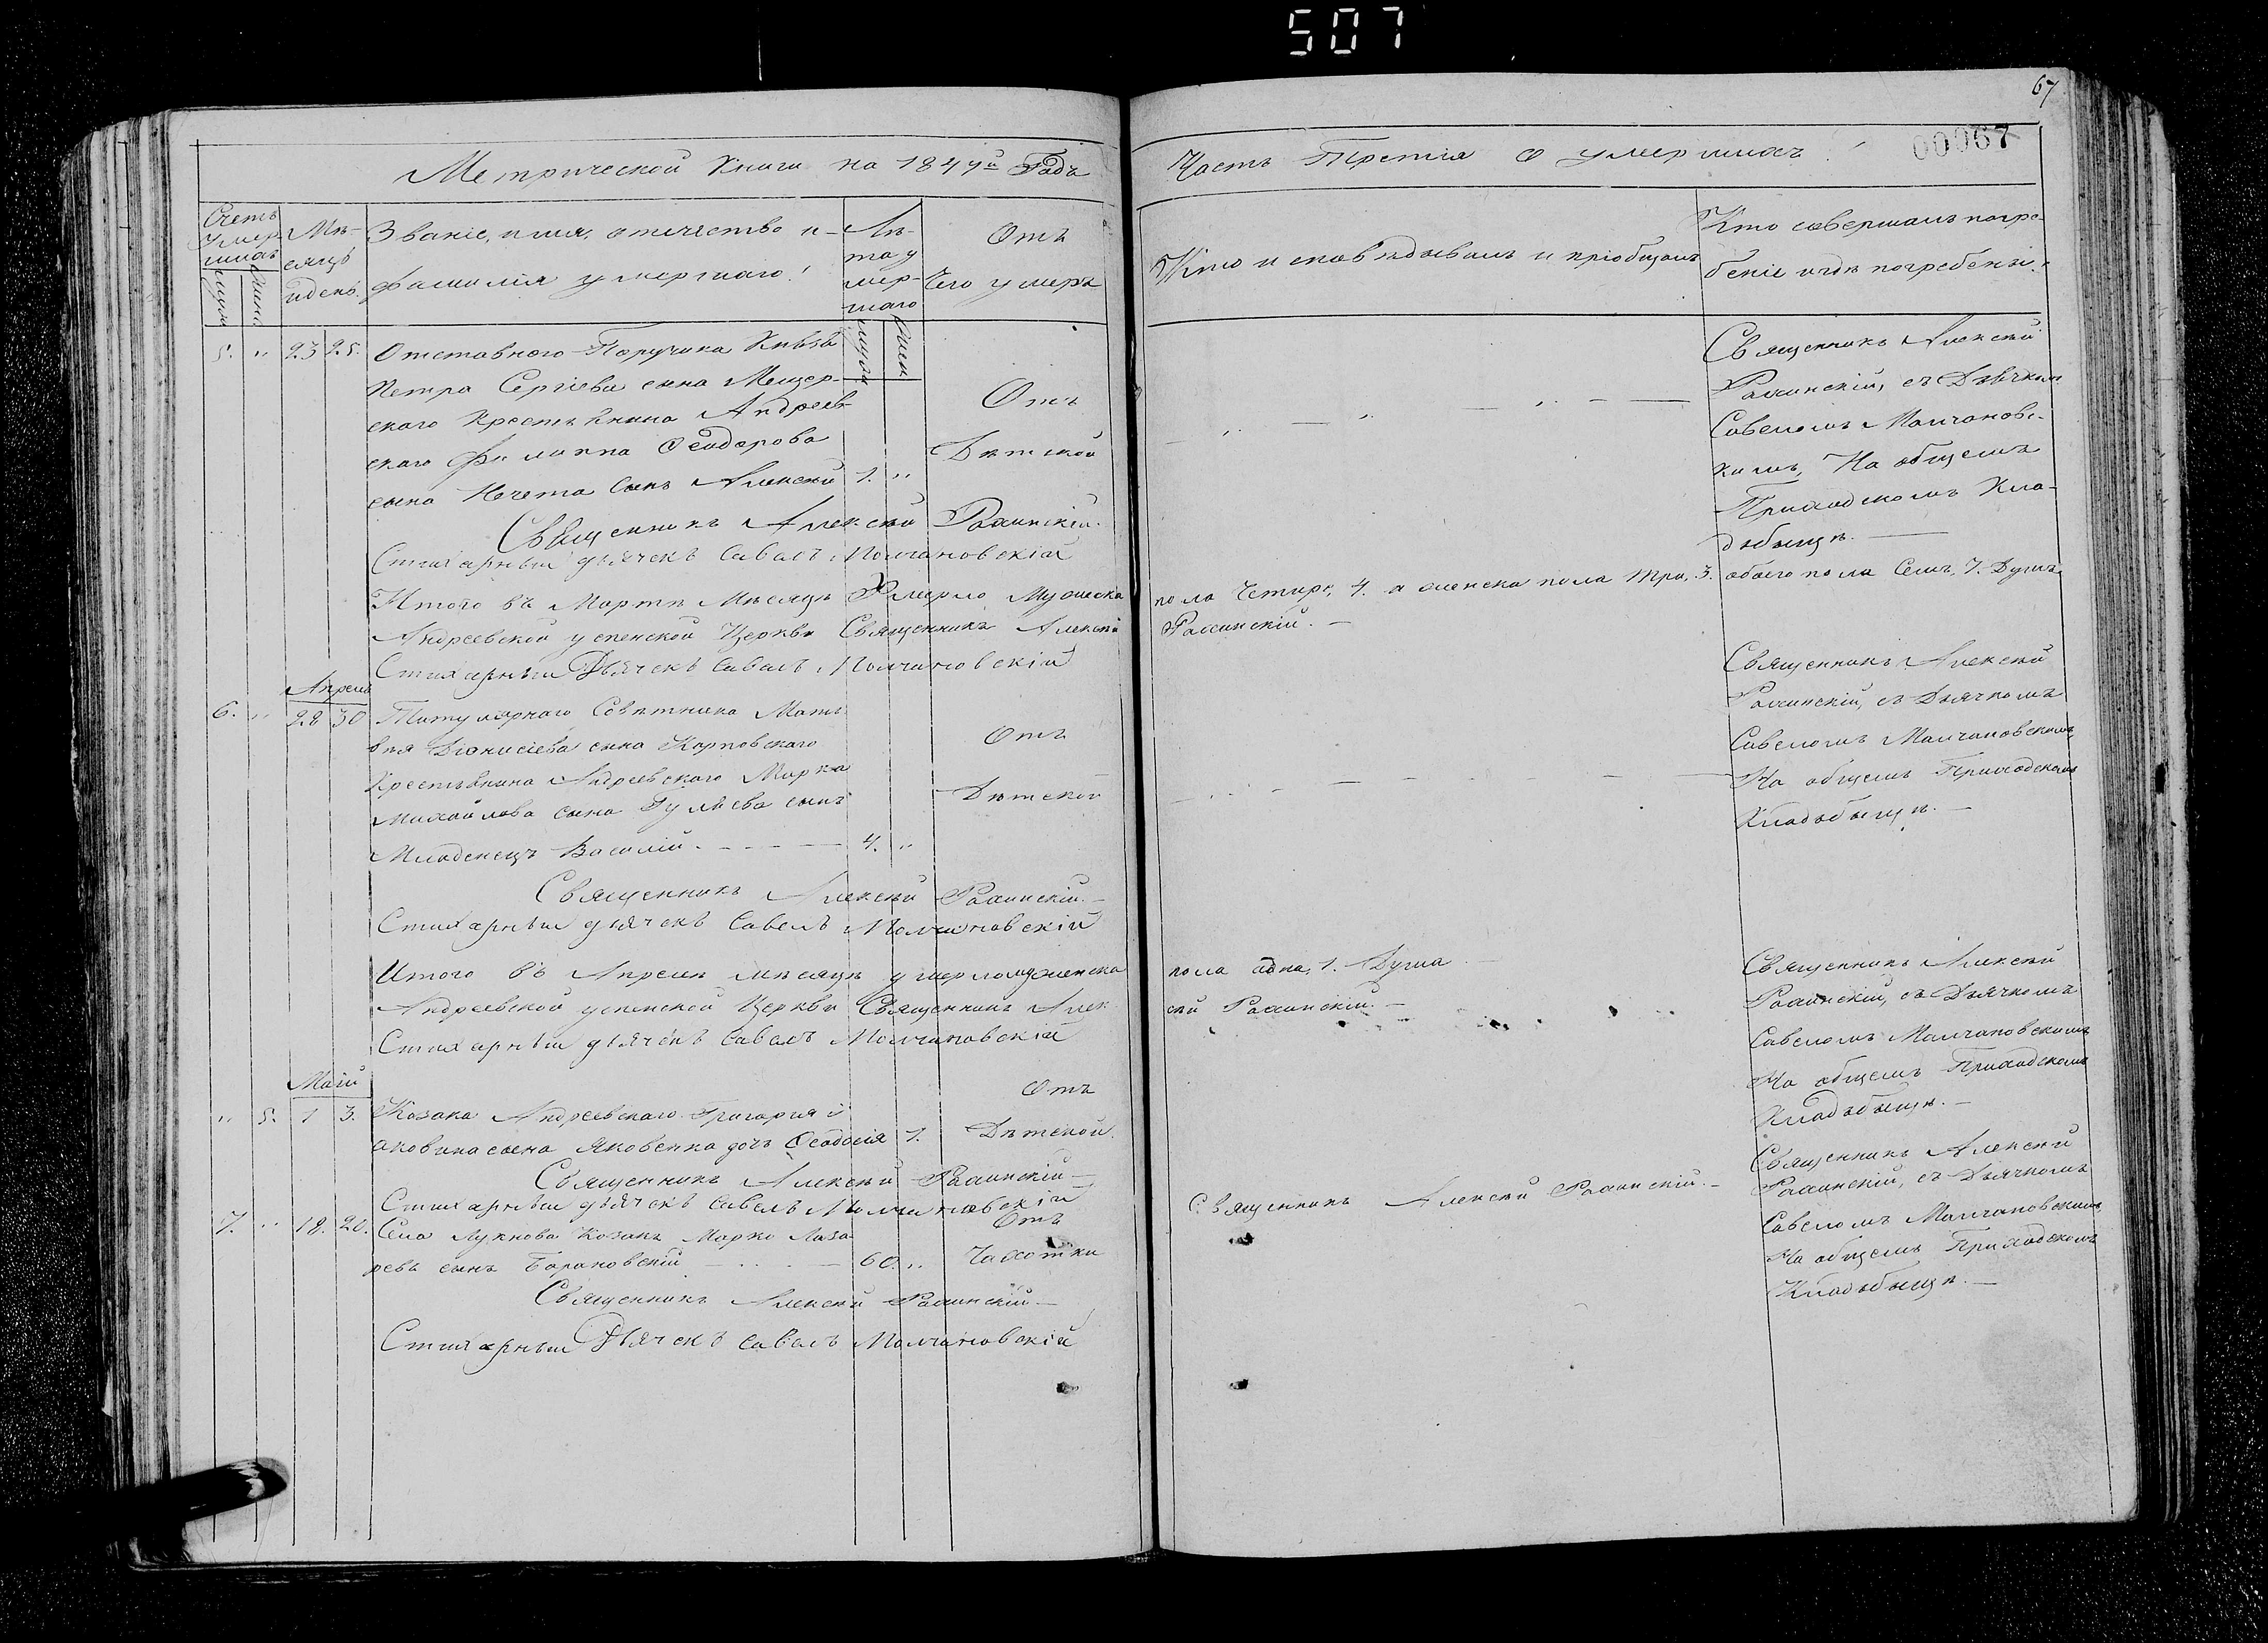 507
67
00067
Метрической Книги на 1847й Годъ
Часть Третія о умершихъ!
Счетъ умершихъ
мужеска
женска
Мѣсяцъ и день.
Званіе, имя, отечество и
фамилія умершаго!
Лѣта умершаго
мужеска
женска
Отъ
Чего умеръ
Кто исповѣдывалъ и пріобщалъ
Кто совершалъ погре-
беніе и гдѣ погребены.
5. " 23 25. Отставного Поручика Князя
Петра Сергіева сына Мещер-
скаго Крестьянина Андреев-
скаго Филиппа Ѳеодорова
сына Нечета сынъ Алексѣй 1. "
Отъ
Дѣтской
Священникъ Алексѣй
съ Дьячкомъ
Савеломъ Молчановс-
кимъ, На общемъ
Приходскомъ Кла-
дбыщѣ.
Священникъ Алексѣй
Стихарный дьячекъ Савелъ Молчановскій
Итого въ Мартѣ Мѣсяцѣ Умерло Мужеска пола Четире, 4. а женска пола три, 3. обоего пола Семь, 7. Душъ
Андреевской успенской Церкви Священникъ Алексѣй
Стихарный Дьячекъ Савелъ Молчановскій
Апрель
6. " 28 30 Титулярнаго Совѣтника Мат-
вѣя Діонисіева сына Карповскаго
Крестьянина Андреевскаго Марка
Михайлова сына Гуляева сынъ
Младенецъ Василій. 4. "
Отъ
Дѣтской
Священникъ Алексѣй
съ Дьячкомъ
Савеломъ Молчановскимъ,
На общемъ Приходскомъ
Кладбыщѣ.
Священникъ Алексѣй
Стихарный дьячекъ Савелъ Молчановскій
Итого въ Апрелѣ мѣсяцѣ умерло пола одна, 1. Душа
Андреевской успенской Церкви Священникъ Алек-
сѣй
Стихарный дьячекъ Савелъ Молчановскій
Маій
" 5. 1 3. Козака Андреевскаго Григорія
сына Яковенка дочь Ѳеодосія 1.
Отъ
Дѣтской.
Священникъ Алексѣй
съ Дьячкомъ
Савеломъ Молчановскимъ
На общемъ Приходскомъ
Кладбыщѣ.
Священникъ Алексѣй
Стихарный дьячекъ Савелъ Молчановскій
7. " 18. 20. Села Лукнова Козакъ Марко Лаза-
ревъ сынъ Барановскій 60. "
Отъ
Чахотки
Священникъ Алексѣй
Священникъ Алексѣй
съ Дьячкомъ
Савеломъ Молчановскимъ,
На общемъ Приходскомъ
Кладбыщѣ.
Священникъ Алексѣй
Стихарный Дьячекъ Савелъ Молчановскій